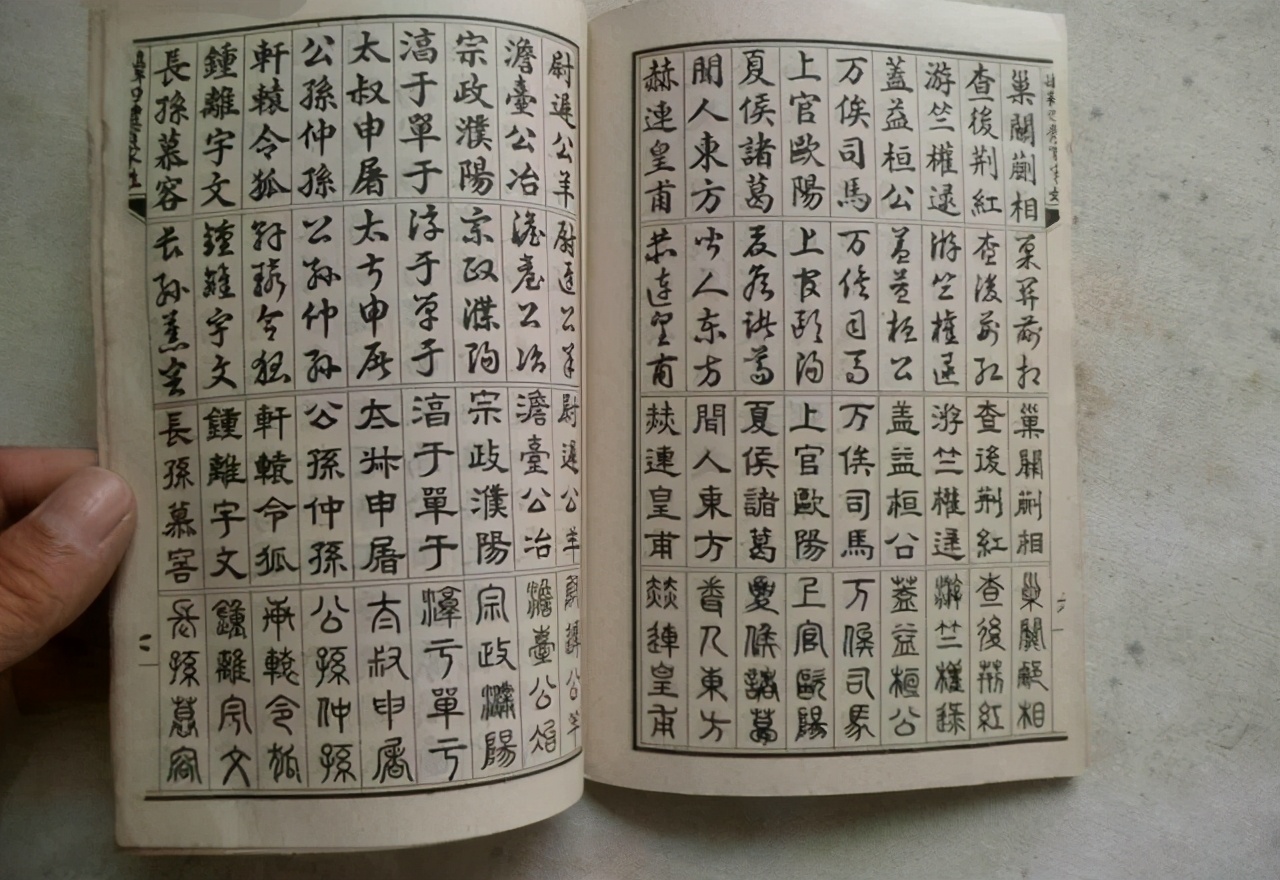 巢關蒯相
查後荊紅
游竺權逯
蓋益桓公
万俟司馬
上官歐陽
夏侯諸葛
聞人東方
赫連皇甫
巢關蒯相
查後荊紅
游竺權逯
蓋益桓公
万俟司馬
上官歐陽
夏侯諸葛
聞人東方
赫連皇甫
巢關蒯相
查後荊紅
游竺權逯
蓋益桓公
万俟司馬
上官歐陽
夏侯諸葛
聞人東方
赫連皇甫
巢關蒯相
查後荊紅
游竺權逯
蓋益桓公
万俟司馬
上官歐陽
夏侯諸葛
聞人東方
赫連皇甫
尉遲公羊
澹臺公冶
宗政濮陽
淳于單于
太叔申屠
公孫仲孫
軒轅令狐
鍾離宇文
長孫慕容
尉遲公羊
澹臺公冶
宗政濮陽
淳于單于
太叔申屠
公孫仲孫
軒轅令狐
鍾離宇文
長孫慕容
尉遲公羊
澹臺公冶
宗政濮陽
淳于單于
太叔申屠
公孫仲孫
軒轅令狐
鍾離宇文
長孫慕容
尉遲公羊
澹臺公冶
宗政濮陽
淳于單于
太叔申屠
公孫仲孫
軒轅令狐
鍾離宇文
長孫慕容